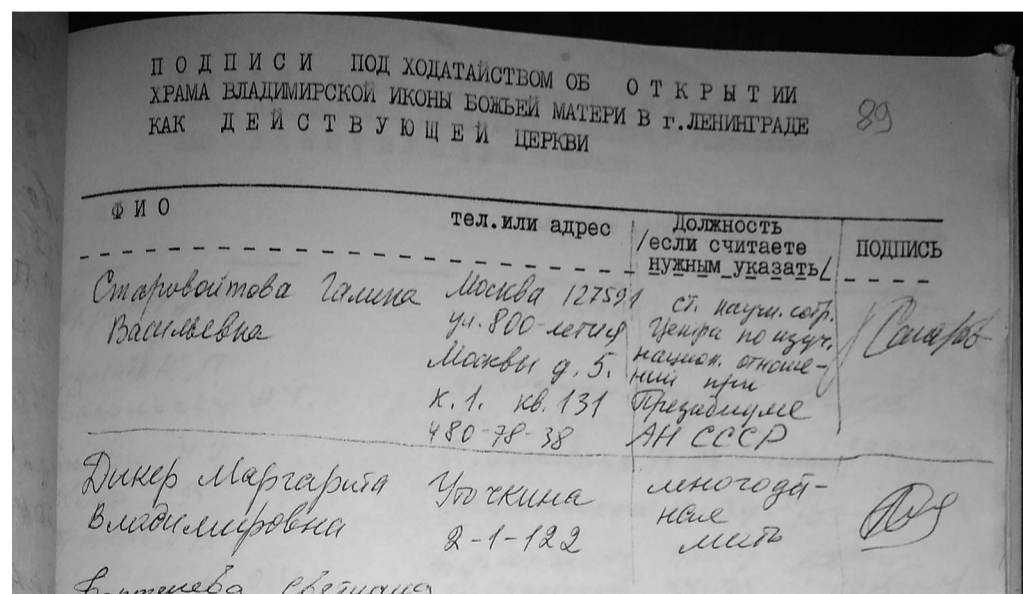 П О Д П И С И ПОД ХОДАТАЙСТВОМ ОБ О Т К Р Ы Т ИИ
ХРАМА ВЛАДИМИРСКОЙ ИКОНЫ БОЖЬЕЙ МАТЕРИ В г.ЛЕНИНГРАДЕ
КАК Д Е Й С Т В У Ю Щ Е Й ЦЕРКВИ
89
Ф И О
тел.или адрес
Должность
/если считаете
нужным указать/
ПОДПИСЬ
Старовойтова Галина
Васильевна
Москва 127591
ул. 800-летия
Москвы д. 5.
к. 1. кв. 131
480-78-38
ст. научн. сотр.
Центра по изуч.
национ. отноше-
ний при
Президиуме
АН СССР
Старов
Дикер Маргарита
Владимировна
Уточкина
2-1-122
многодет-
ная
мать
Светлана